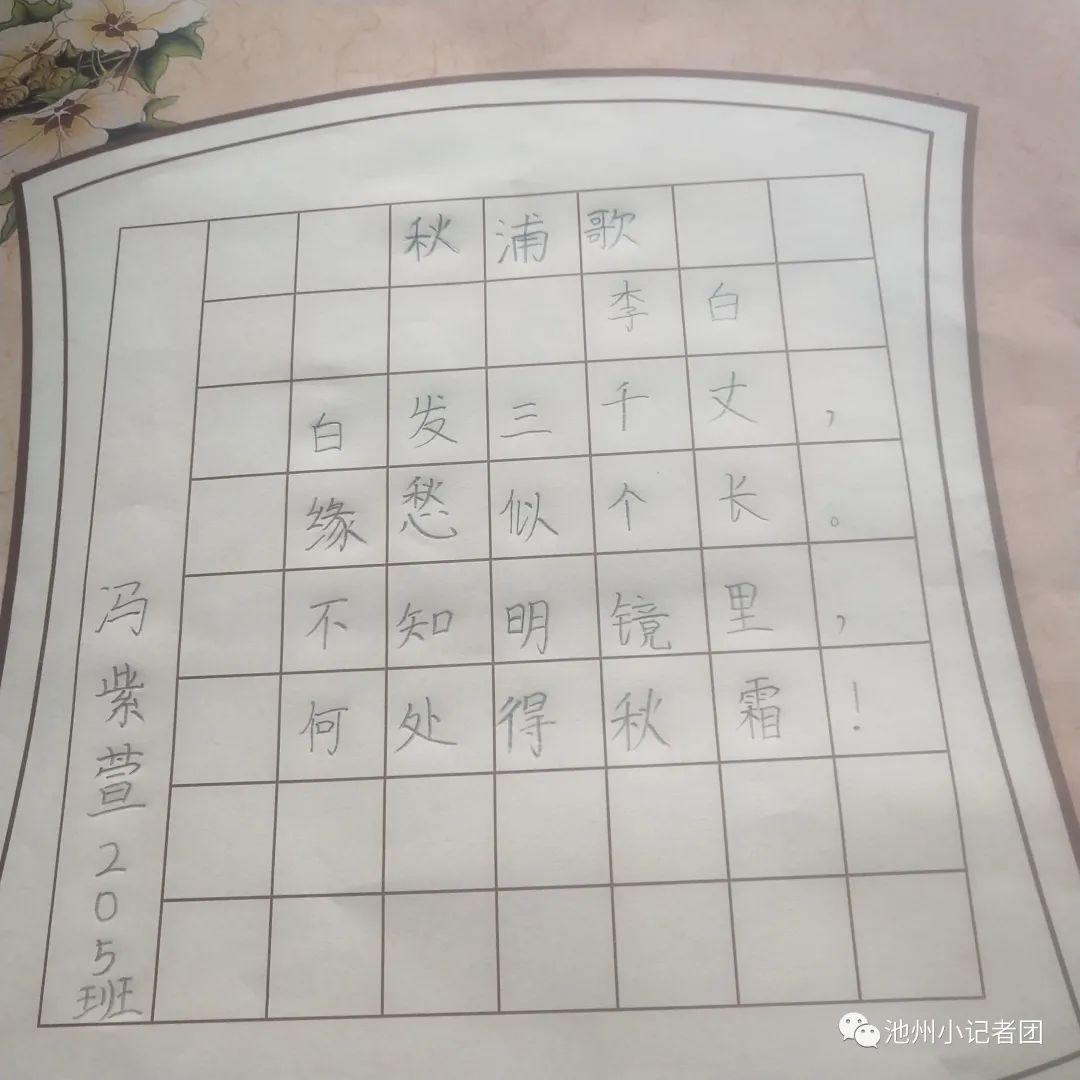 秋浦歌
李白
白发三千丈，
缘愁似个长。
不知明镜里，
何处得秋霜！
冯紫萱205班
池州小记者团